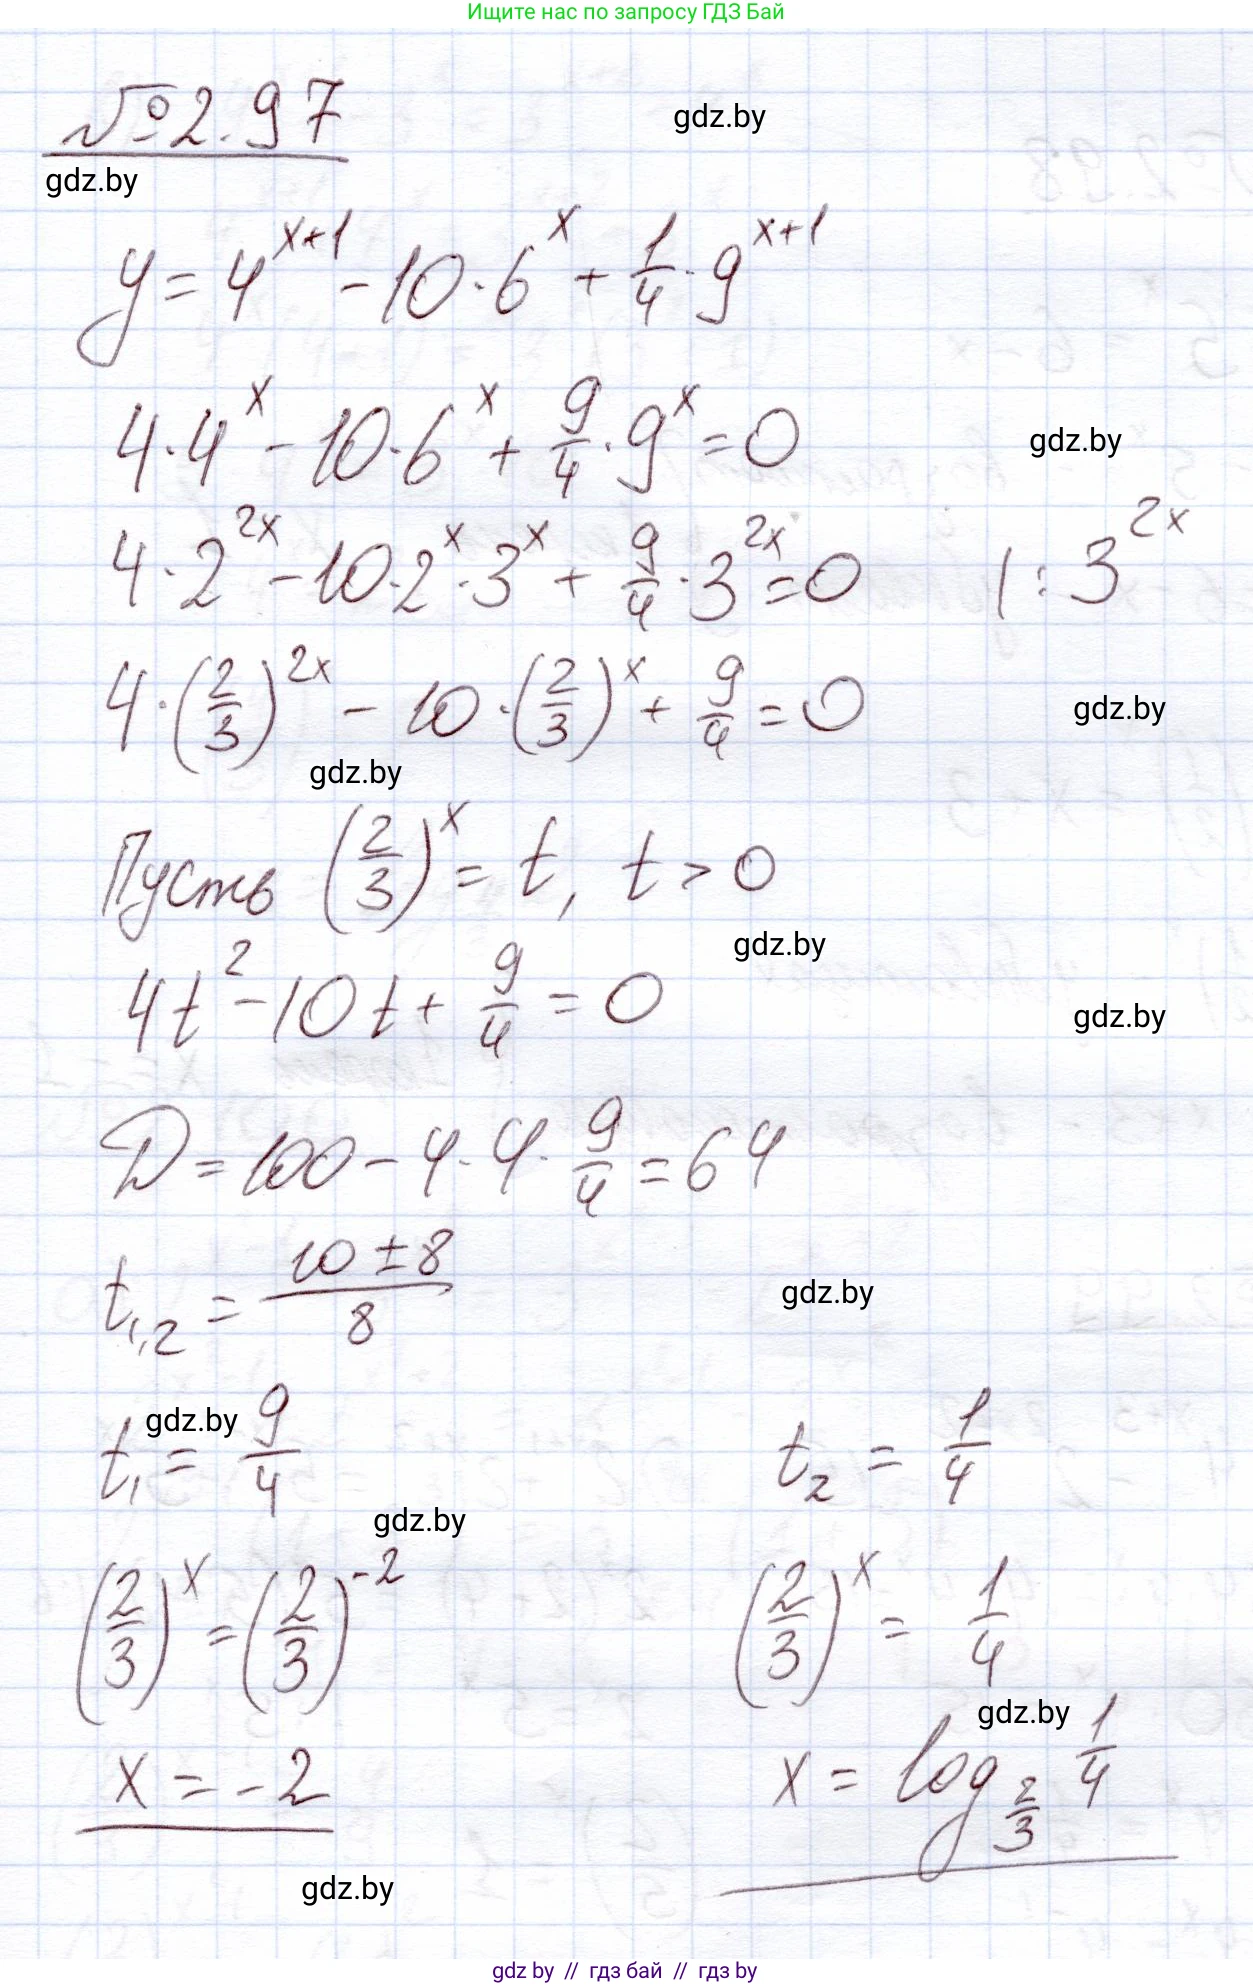 Ищите нас по запросу ГДЗ Бай
№2.97
gdz.by
gdz.by
y = 4^(x+1) - 10 · 6^x + 1/4 · 9^(x+1)
4 · 4^x - 10 · 6^x + 9/4 · 9^x = 0
gdz.by
4 · 2^(2x) - 10 · 2^x · 3^x + 9/4 · 3^(2x) = 0 | : 3^(2x)
4 · (2/3)^(2x) - 10 · (2/3)^x + 9/4 = 0
gdz.by
gdz.by
Пусть (2/3)^x = t, t > 0
gdz.by
4t^2 - 10t + 9/4 = 0
gdz.by
D = 100 - 4 · 4 · 9/4 = 64
t1,2 = (10 ± 8)/8
gdz.by
gdz.by
t1 = 9/4 t2 = 1/4
gdz.by
(2/3)^x = (2/3)^(-2) (2/3)^x = 1/4
gdz.by
x = -2 x = log_(2/3) 1/4
gdz.by
gdz by // гдз бай // гдз by